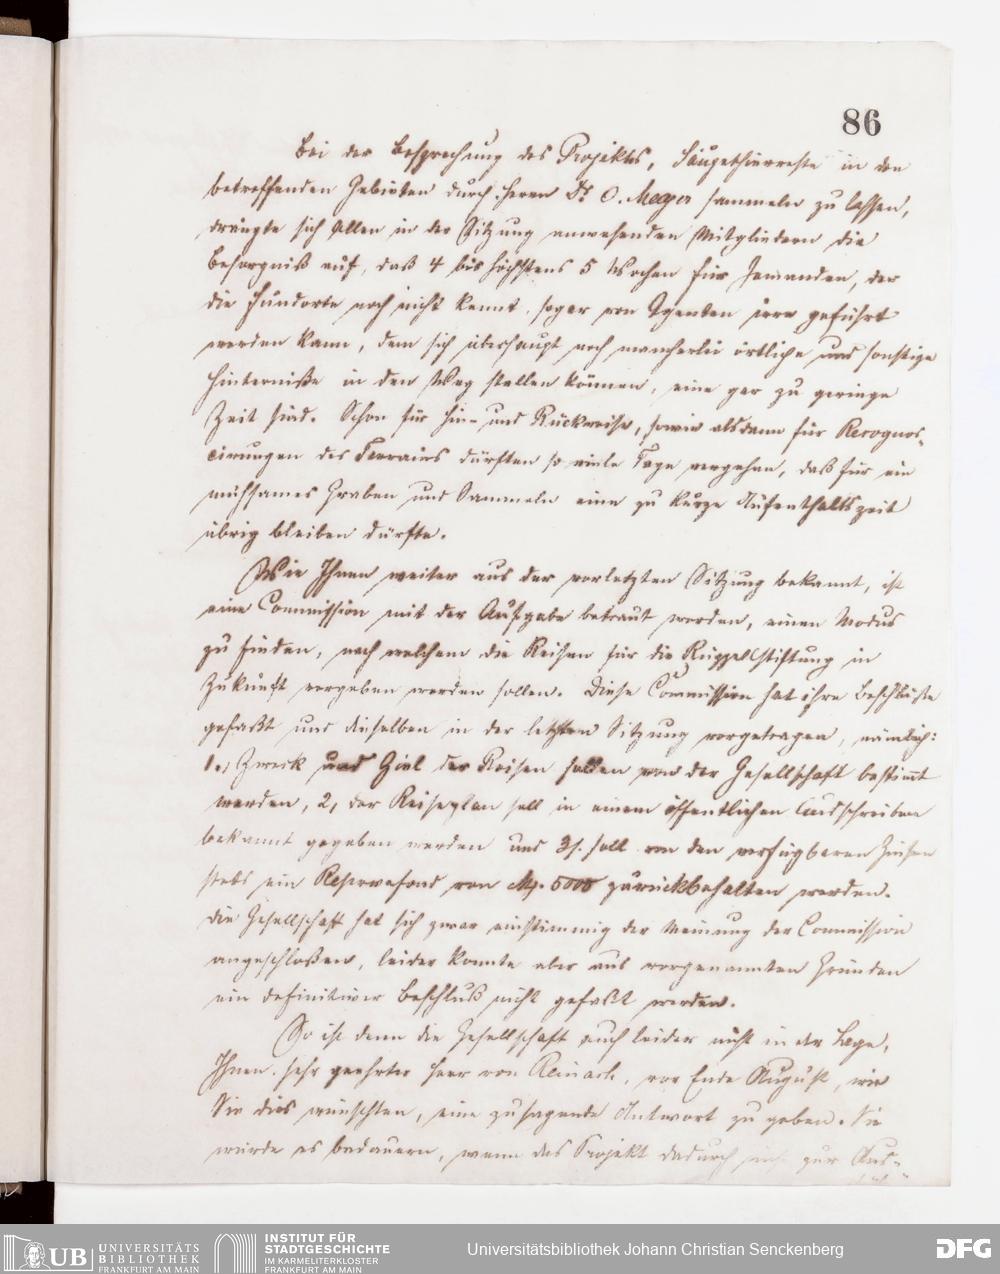 86
Bei der Besprechung des Projektes, Säugethierreste in den
betreffenden Gebieten durch Herrn Dr. O. Meyer sammeln zu lassen,
drängte sich Allen in der Sitzung anwesenden Mitgliedern die
Besorgniß auf, daß 4 bis höchstens 5 Wochen für Jemanden, der
die Fundorte noch nicht kennt, sogar von Agenten irre geführt
werden kann, dem sich überhaupt noch mancherlei örtliche und sonstige
Hinterniße in den Weg stellen können, eine gar zu geringe
Zeit sind. Schon für Hin- und Rückreise, sowie alsdann für Recognos-
cirungen des Terrains dürften so viele Tage vergehen, daß für ein
mühsames Graben und Sammeln eine zu kurze Aufenthaltszeit
übrig bleiben dürfte.
Wie Ihnen weiter aus der vorletzten Sitzung bekannt, ist
eine Commission mit der Aufgabe betraut worden, einen Modus
zu finden, nach welchem die Reisen für die Rüppellstiftung in
Zukunft vergeben werden sollen. Diese Commission hat ihre Beschlüße
gefaßt und dieselben in der letzten Sitzung vorgetragen, nämlich:
1., Zweck und Ziel der Reisen sollen von der Gesellschaft bestimmt
werden, 2, der Reiseplan soll in einem öffentlichen Ausschreiben
bekannt gegeben werden und 3, soll von den verfügbaren Zinsen
stets ein Reservefond von M. 5000 zurückbehalten werden.
Die Gesellschaft hat sich zwar einstimmig der Meinung der Commission
angeschloßen, leider konnte aber aus vorgenannten Gründen
ein definitiver Beschluß nicht gefaßt werden.
So ist denn die Gesellschaft auch leider nicht in der Lage,
Ihnen, sehr geehrter Herr von Reinach, vor Ende August, wie
Sie dies wünschten, eine zusagende Antwort zu geben. Sie
würde es bedauern, wenn das Projekt dadurch nicht zur Aus-
UB UNIVERSITÄTS
BIBLIOTHEK
FRANKFURT AM MAIN
INSTITUT FÜR
STADTGESCHICHTE
IM KARMELITERKLOSTER
FRANKFURT AM MAIN
Universitätsbibliothek Johann Christian Senckenberg
DFG